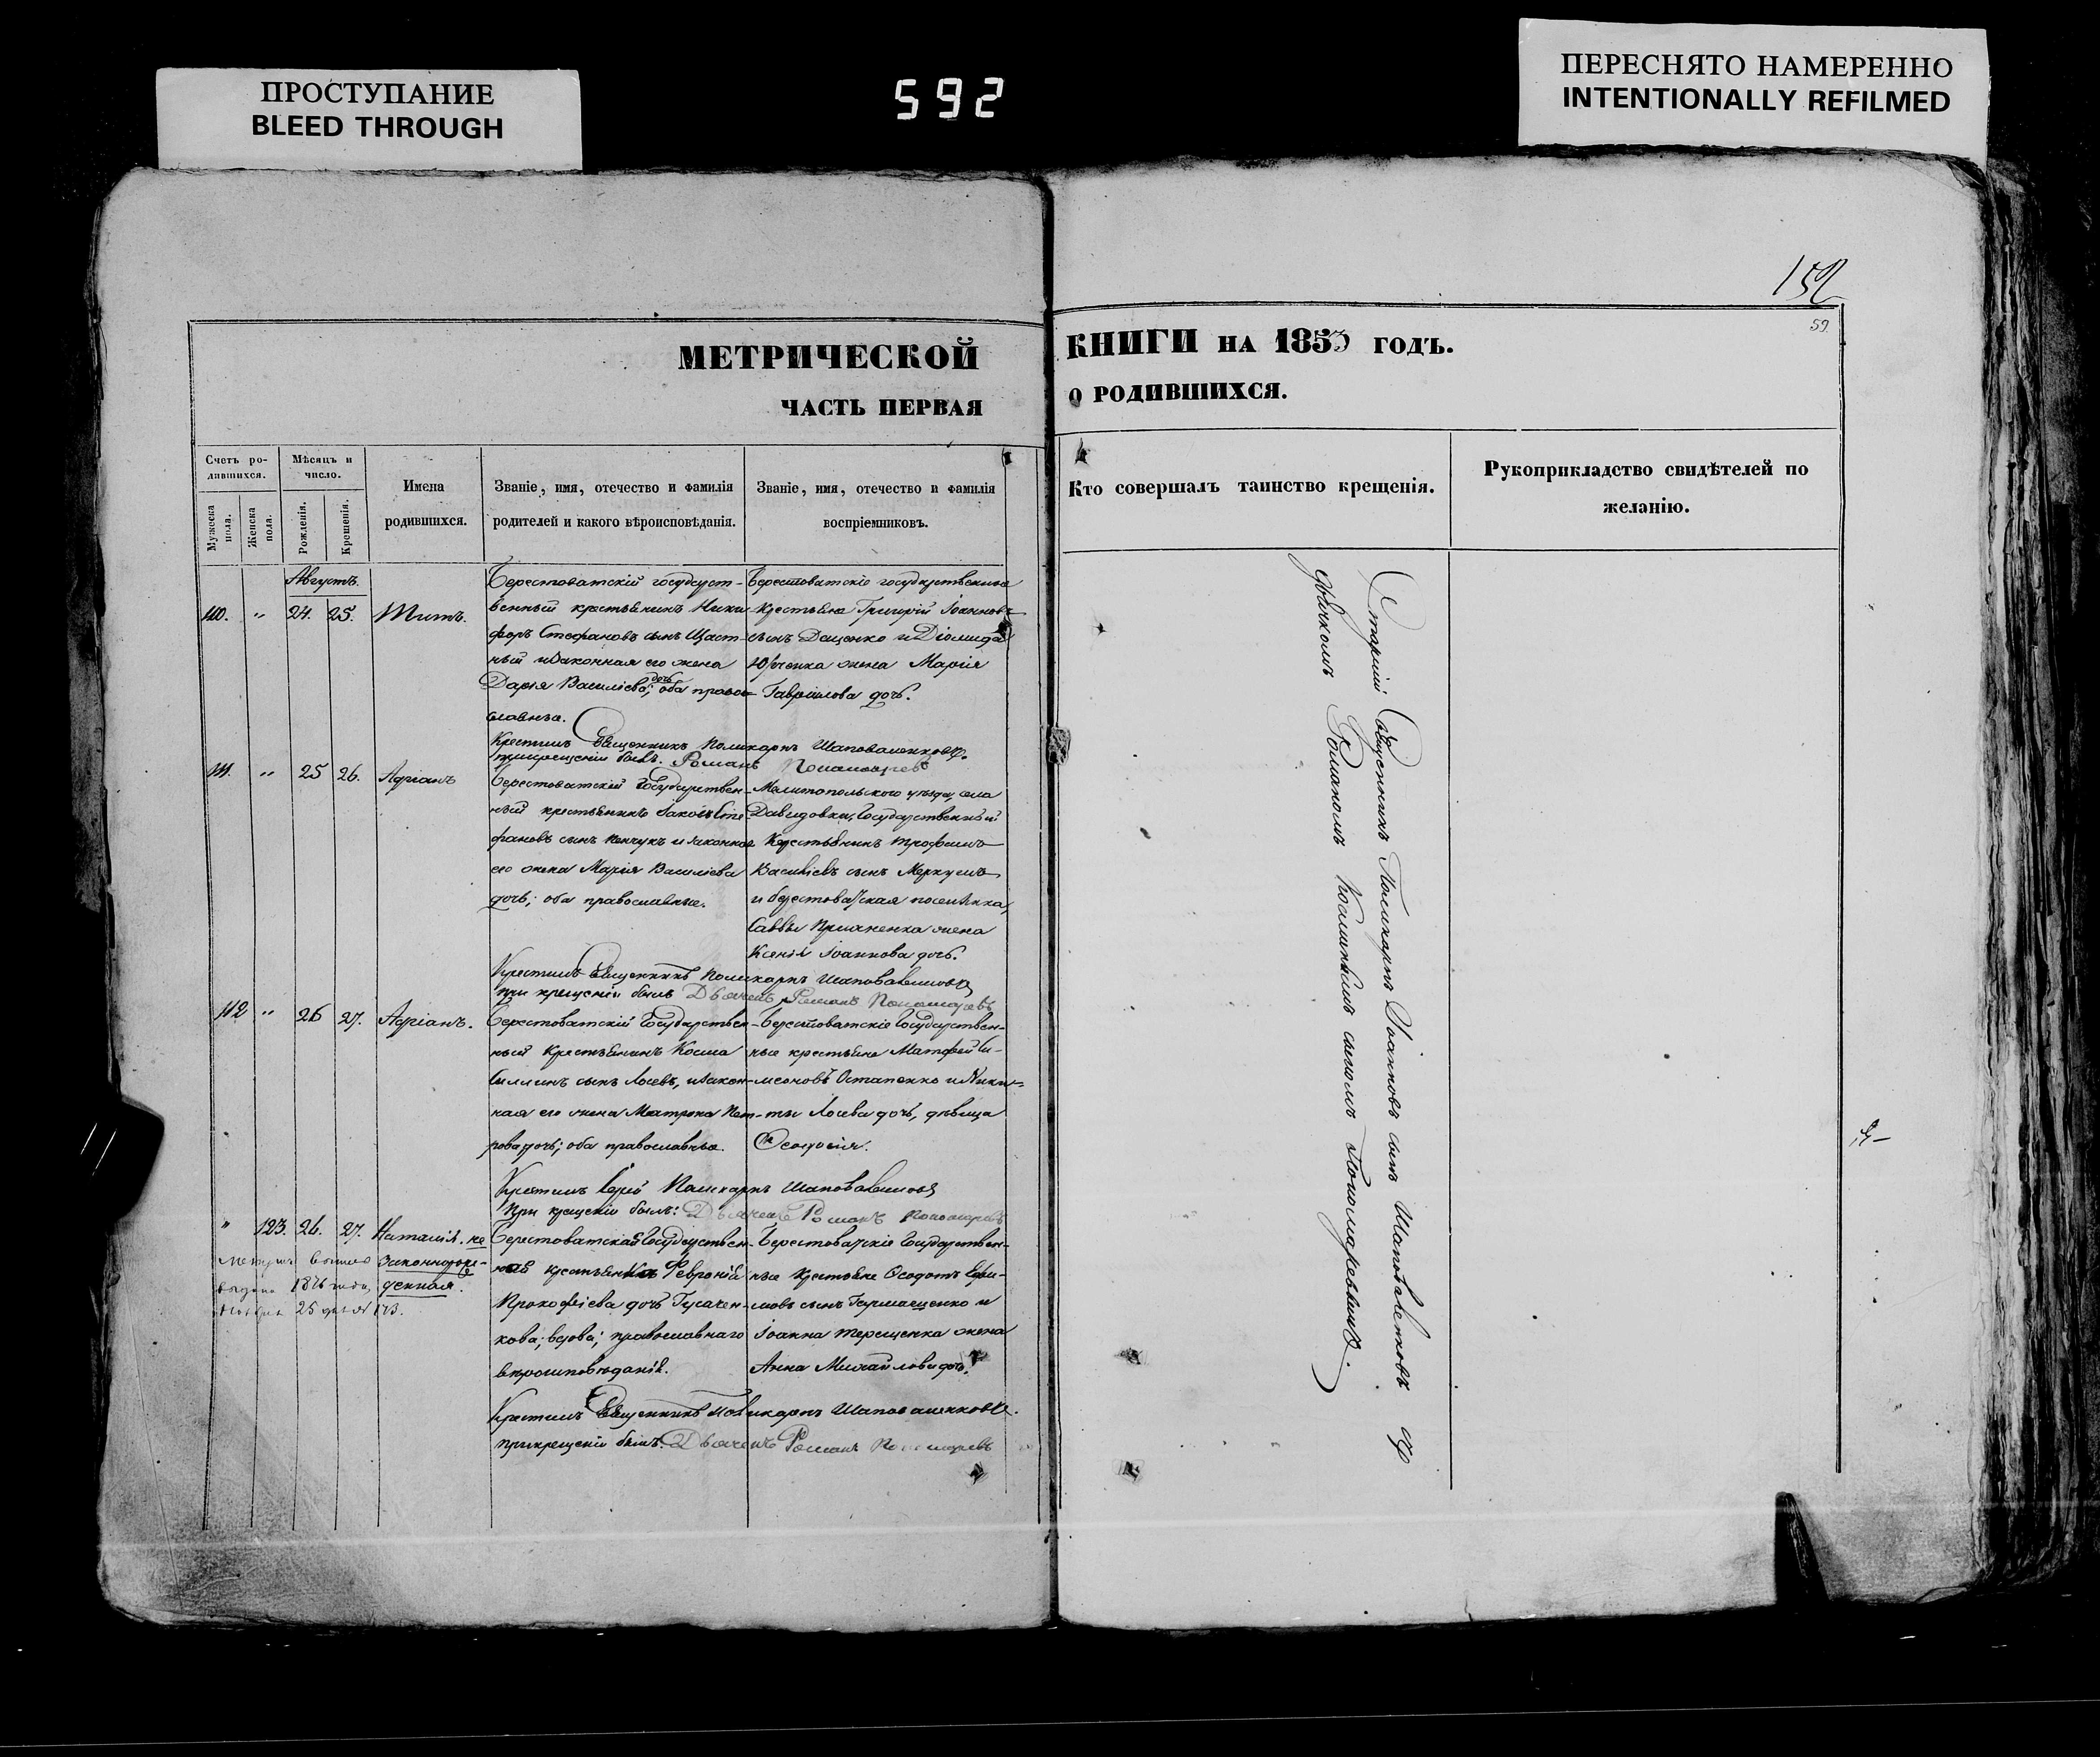 ПРОСТУПАНИЕ
BLEED THROUGH
592
ПЕРЕСНЯТО НАМЕРЕННО
INTENTIONALLY REFILMED
152
59
МЕТРИЧЕСКОЙ
ЧАСТЬ ПЕРВАЯ
КНИГИ НА 1853 ГОДЪ.
О РОДИВШИХСЯ.
Счетъ ро-
дившихся.
Мужеска пола.
Женска пола.
Мѣсяцъ и
число.
Рожденія.
Крещенія.
Имена
родившихся.
Званіе, имя, отечество и фамилія
родителей и какого вѣроисповѣданія.
Званіе, имя, отечество и фамилія
воспріемниковъ.
Кто совершалъ таинство крещенія.
Рукоприкладство свидѣтелей по
желанію.
Августъ.
110. " 24. 25. Титъ.
Берестоватскій государст-
венный крестьянинъ Ники-
форъ Стефановъ сынъ Щаст-
ный и законная его жена
Дарія Василіева дочь; оба право-
славные.
Берестоватскіе государственные
крестьяне Григорій Іоанновъ
сынъ Даценко и Діомида
жена Марія
Гавріилова дочь.
Крестилъ Священникъ Поликарпъ Шаповаленковъ.
при крещеніи былъ. Романъ Пономаревъ
111. " 25 26. Адріанъ
Берестоватскій Государствен-
ный крестьянинъ Іаковъ Сте-
фановъ сынъ и законная
его жена Марія Василіева
дочь; оба православные.
Мелитопольского уѣзда, села
Давидовки, Государственный
Крестьянинъ Трофимъ
Василіевъ сынъ
и берестоватская поселянка,
Саввы жена
Ксенія Іоаннова дочь.
Крестилъ Священникъ Поликарпъ Шаповаленковъ
при крещеніи былъ Дьячекъ Романъ Пономаревъ
112 " 26 27. Адріанъ.
Берестоватскій Государствен-
ный Крестьянинъ Косма
сынъ Лосевъ, и закон-
ная его жена Матрона Пет-
рова дочь; оба православные.
Берестоватскіе Государствен-
ные крестьяне Матфей Си-
меоновъ Остапенко и Ники-
ты Лосева дочь, дѣвица
Ѳеодосія.
Крестилъ Іерей Поликарпъ Шаповаленковъ
При крещеніи былъ: Дьячекъ Романъ Пономаревъ
" 123. 26. 27. Наталія. не
законнорож-
денная.
выдано 1876 года,
25 дня 173.
Берестоватская Государствен-
ная крестьянка Февронія
Прокофіева дочь Гусачен-
кова; вдова; православнаго
вѣроисповѣданія.
Берестоватскіе Государствен-
ные Крестьяне Ѳеодотъ Ефи-
мовъ сынъ и
Іоанна Терещенка жена
Анна Михайлова дочь.
Крестилъ Священникъ Поликарпъ Шаповаленковъ.
при крещеніи былъ: Дьячекъ Романъ Пономаревъ
Старшій Священникъ Поликарпъ Іоанновъ сынъ Шаповаленковъ съ
дьячкомъ Романомъ сыномъ Пономаревымъ.